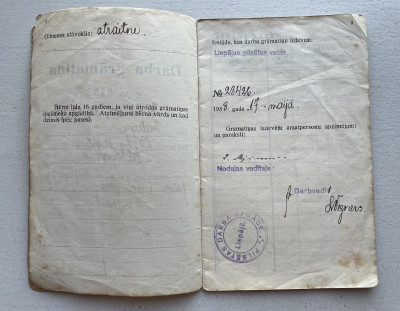 Ģimenes stāvoklis: atraitne.
Bērni līdz 16 gadiem, ja viņi atrodas grāmatiņas
īpašnieka apgādībā. Atzīmējams bērna vārds un kad
dzimis (pēc pases).
Iestāde, kas darba grāmatiņu izdevusi:
Liepājas pilsētas valde.
№ 28426.
1938. gada 17. maijā.
Grāmatiņas izdevēju amatpersonu apzīmējumi
un paraksti:
Nodaļas vadītājs
Darbvedis
PILSĒTAS DARBA
Liepājā